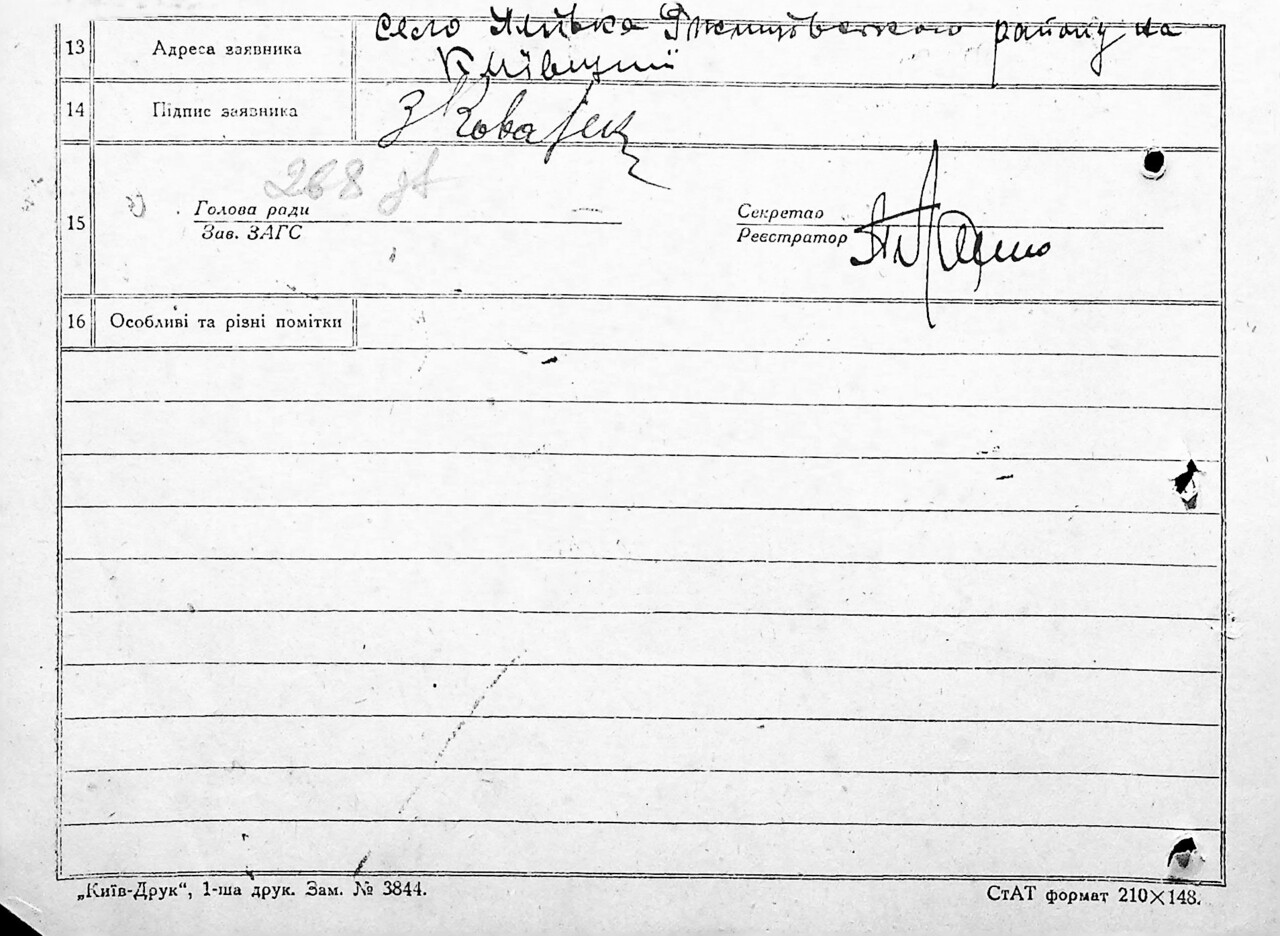 13 Адреса заявника село Ялівка Ржищівського району на
Київщині
14 Підпис заявника З Ковалек
268
15 Голова ради Секретар
Зав. ЗАГС Реєстратор
16 Особливі та різні помітки
„Київ-Друк“, 1-ша друк. Зам. № 3844. СтАТ формат 210×148.